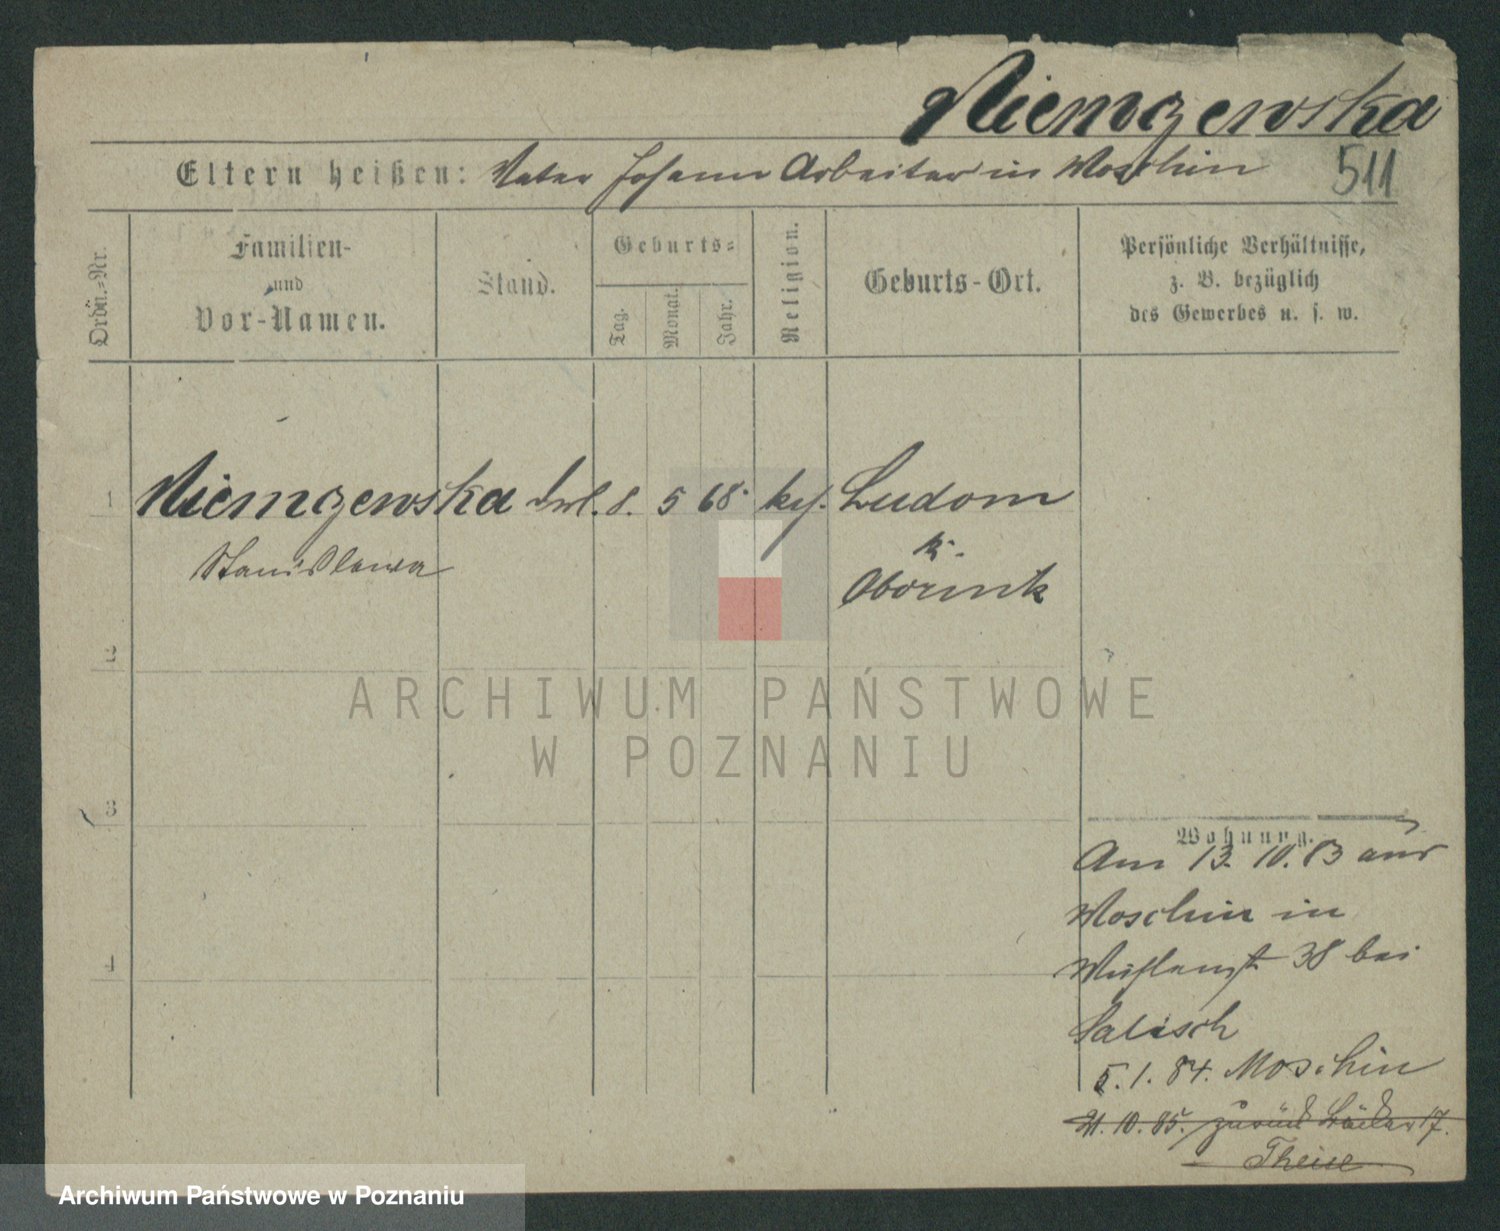 Niemczewska
Eltern heißen: Vater Johann Arbeiter in Moschin
511
Ordn.-Nr.
Familien-
und
Vor-Namen.
Stand.
Geburts-
Tag.
Monat.
Jahr.
Religion.
Geburts-Ort.
Persönliche Verhältnisse,
z. B. bezüglich
des Gewerbes u. s. w.
1 Niemczewska 8. 5 68. Ludom
Stanislawa
Obornik
2
ARCHIWUM PAŃSTWOWE
W POZNANIU
3
Wohnung.
Am 13. 10. 83 aus
Moschin in
4
38 bei
Salisch
5. 1. 84. Moschin
21. 10. 85. zurück Bäcker 17.
Theise
Archiwum Państwowe w Poznaniu